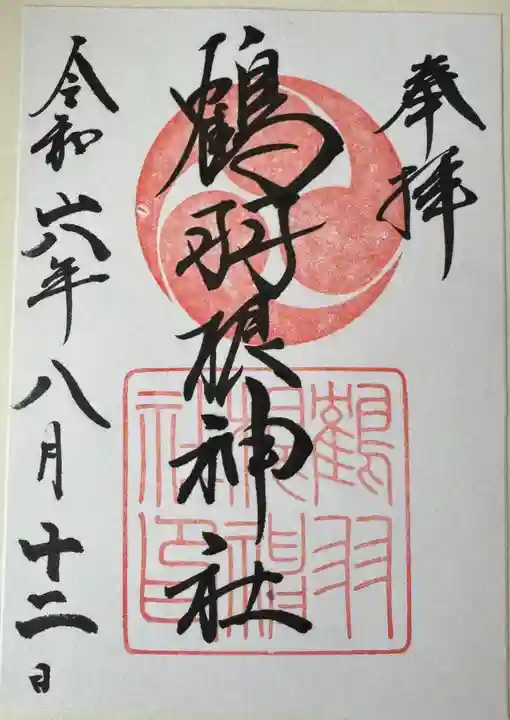 奉拝
鶴羽根神社
鶴羽根神社印
令和六年八月十二日